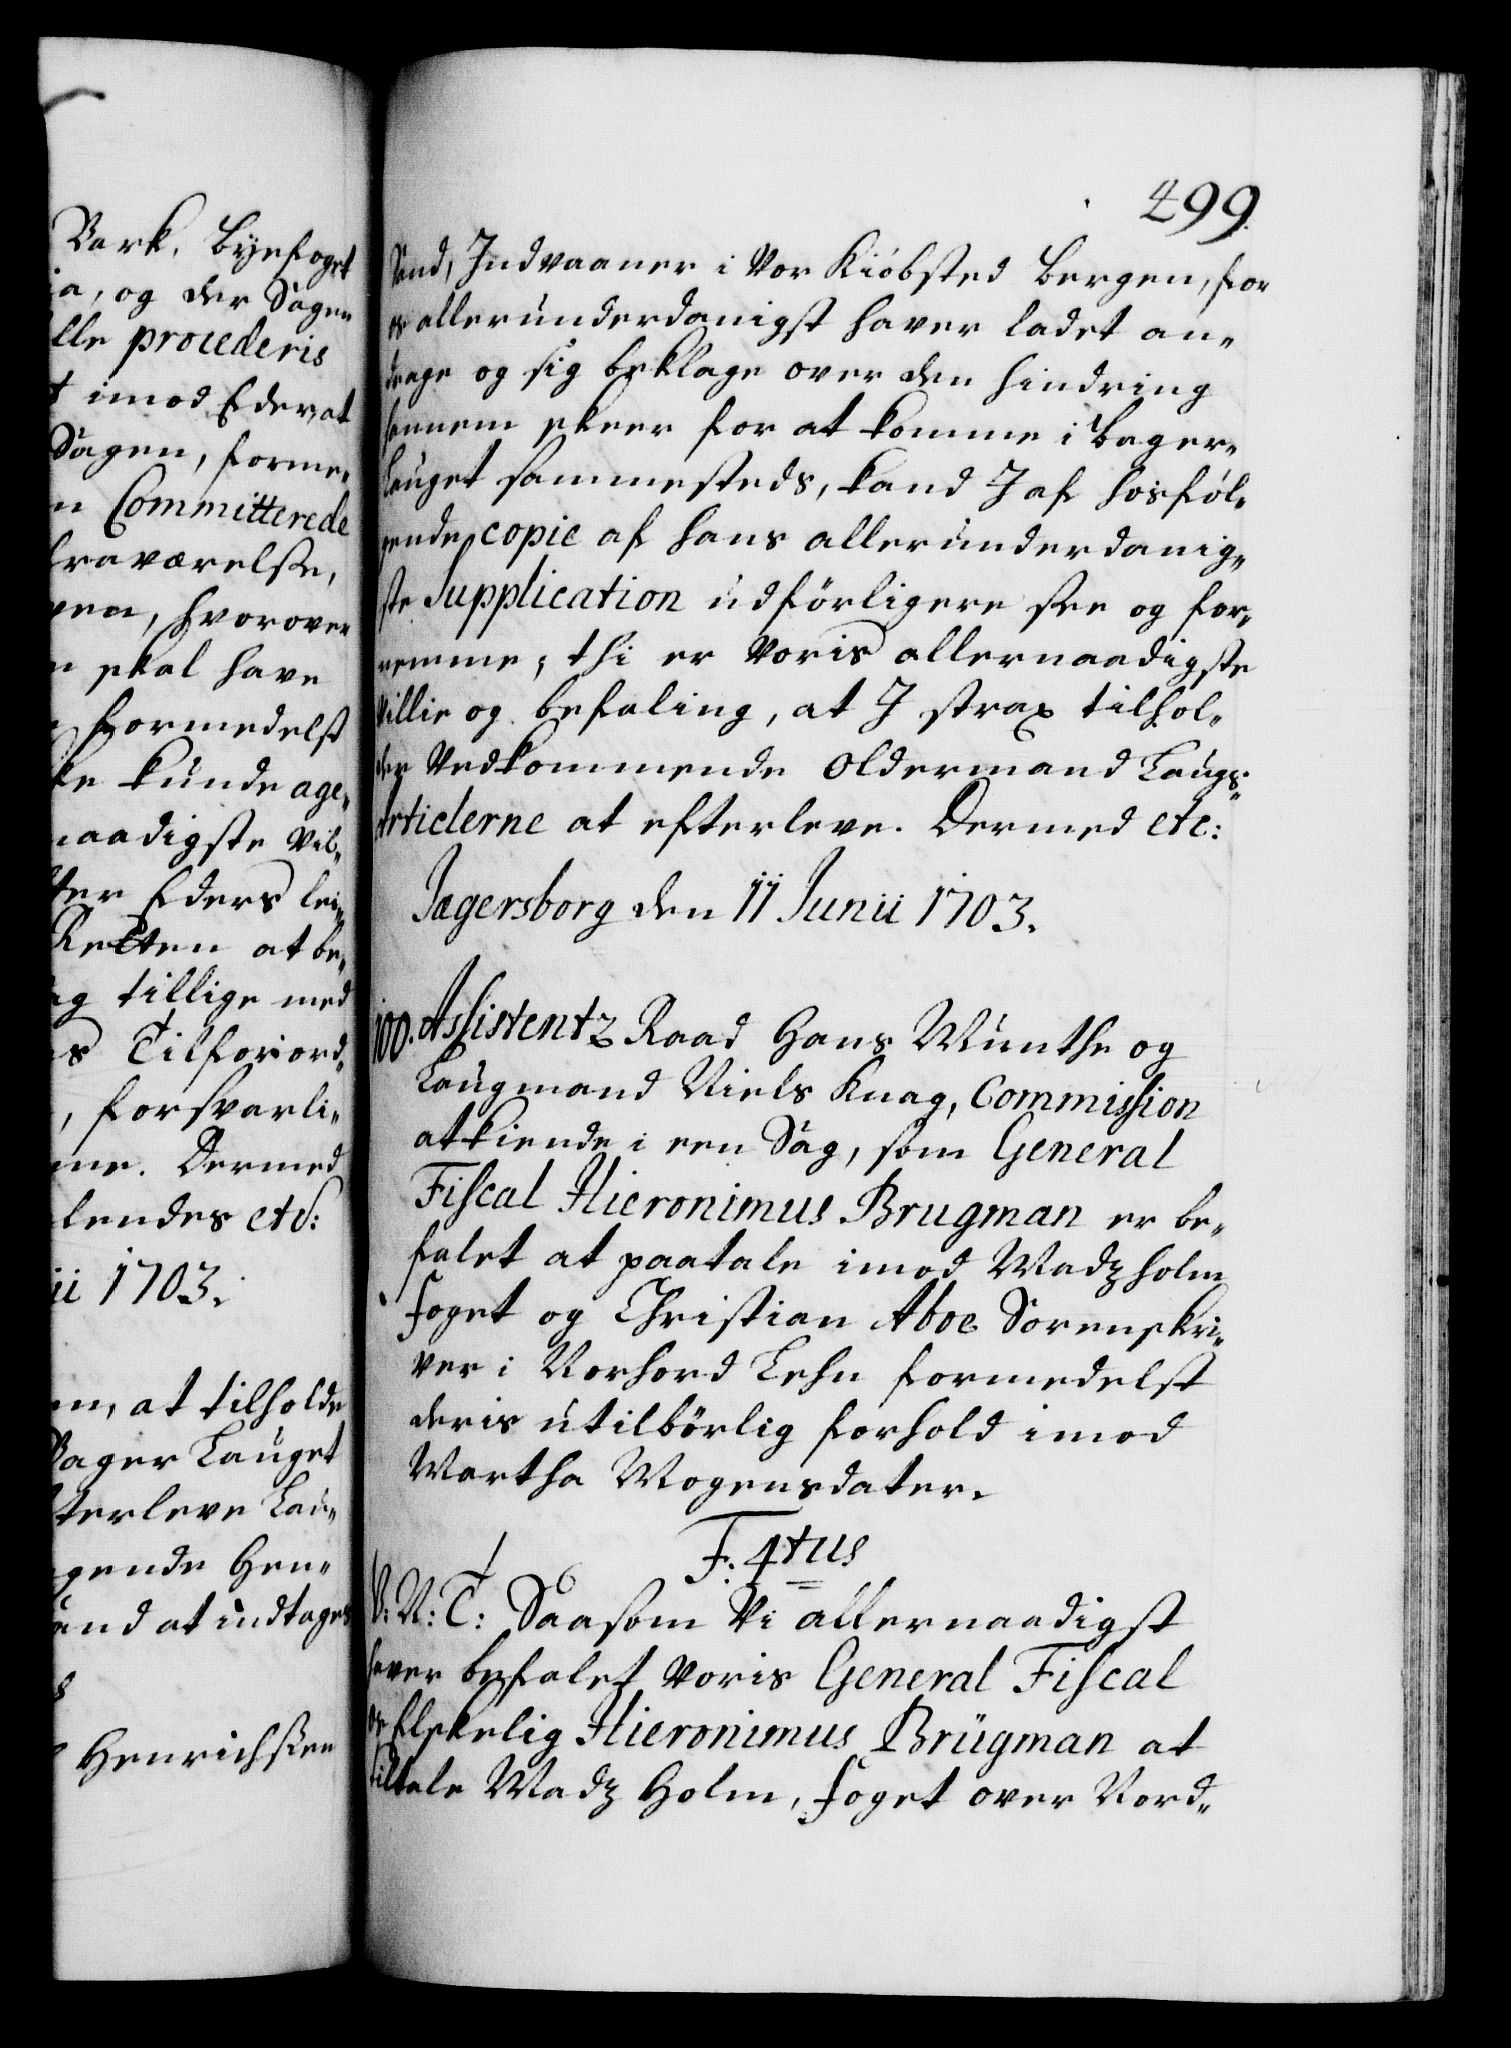 Bark, Byefoget
ia, og der Sagen
lle procederis
t imod Eder, at
Sagen, forme„
n Committerede
fraværelse,
hvorover
n skal have
formedelst
ke kunde age„
naadigste Vil„
ter Eders lei„
Retten at be„
ag tillige med
s Tilforord„
, forsvarli„
me. Dermed
lendes etc:
ii 1703.
m, at tilholde
Bager Lauget
terleve Lau„
gende Hen„
end at indtages
Henrichsen
499.
Send, Indvaaner i Vor Kiöbsted Bergen, for
os allerunderdanigst haver ladet an„
drage og sig beklage over den hindring
hannem skeer for at komme i Bager„
Lauget sammesteds, kand I af hosföl„
gende copie af hans allerunderdanig„
ste Supplication udförligere see og for„
nemme; thi er Voris allernaadigste
Villie og befaling, at I strax tilhol„
der Vedkommende Oldermand Laugs„
Articlerne at efterleve. Dermed etc:
Jægersborg den 11 Junii 1703.
100. Assistentz Raad Hans Munthe og
Laugmand Niels Knag, Commission
at kiende i een Sag, som General
Fiscal Hieronimus Brugman er be„
falet at paatale imod Madz Holm
Foget og Christian Aboe Sorenskri„
ver i Norhord Lehn formedelst
deris utilbörlig forhold imod
Martha Mogensdater.
F. 4tus
V: N: T: Saasom Vi allernaadigst
haver befalet Voris General Fiscal
os Elskelig Hieronimus Brügman at
tiltale Madz Holm, Foget over Nord„